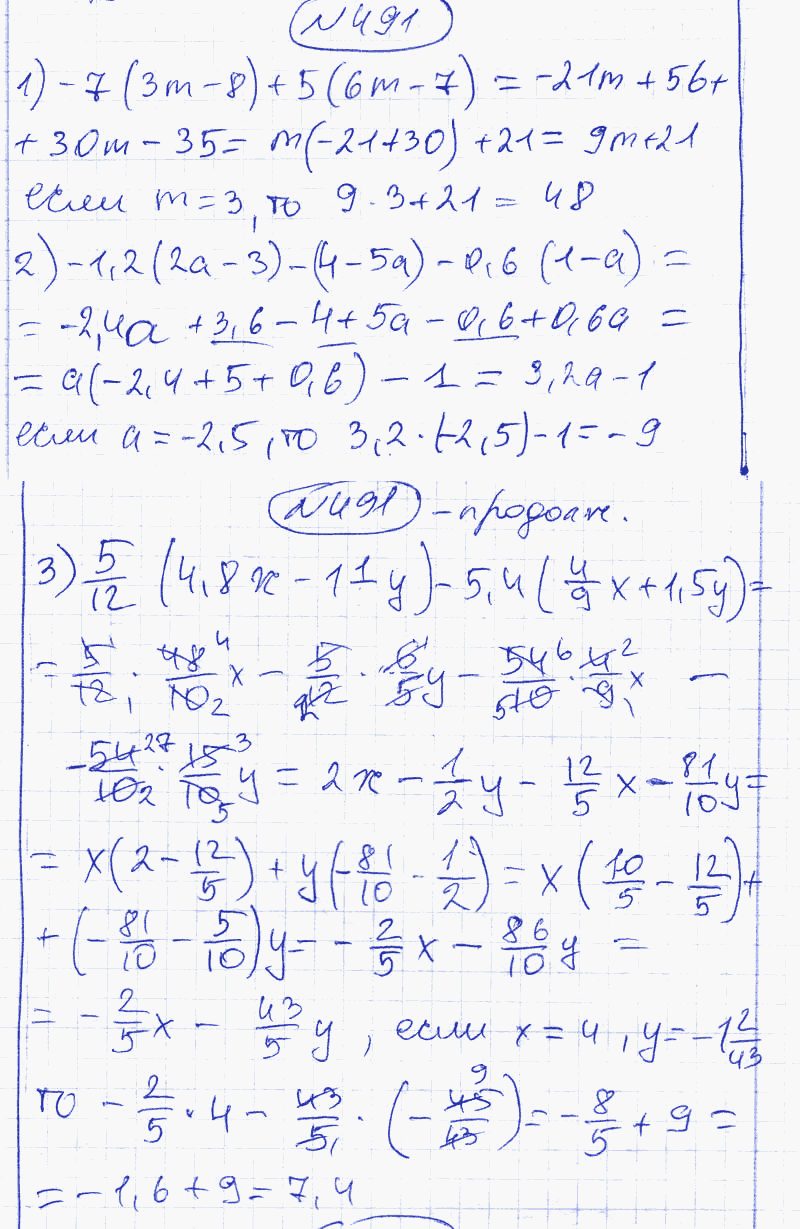 №491
1) -7(3m-8)+5(6m-7) = -21m+56+
+30m-35= m(-21+30)+21= 9m+21
если m=3, то 9·3+21= 48
2) -1,2(2a-3)-(4-5a)-0,6(1-a) =
= -2,4a +3,6-4+5a-0,6+0,6a =
= a(-2,4+5+0,6)-1= 3,2a-1
если a=-2,5, то 3,2·(-2,5)-1=-9
№491 - продолж.
3) 5/12 (4,8x - 1 1/5 y) - 5,4(4/9 x+1,5y)=
= 5/12 · 48/10 x - 5/12 · 6/5 y - 54/10 · 4/9 x -
- 54/10 · 15/10 y = 2x - 1/2 y - 12/5 x - 81/10 y=
= x(2 - 12/5) + y(-81/10 - 1/2) = x(10/5 - 12/5)+
+ (-81/10 - 5/10)y= -2/5 x - 86/10 y =
= -2/5 x - 43/5 y, если x=4, y=-1 2/43
то -2/5 · 4 - 43/5 · (-45/43)= -8/5 + 9 =
= -1,6+9= 7,4